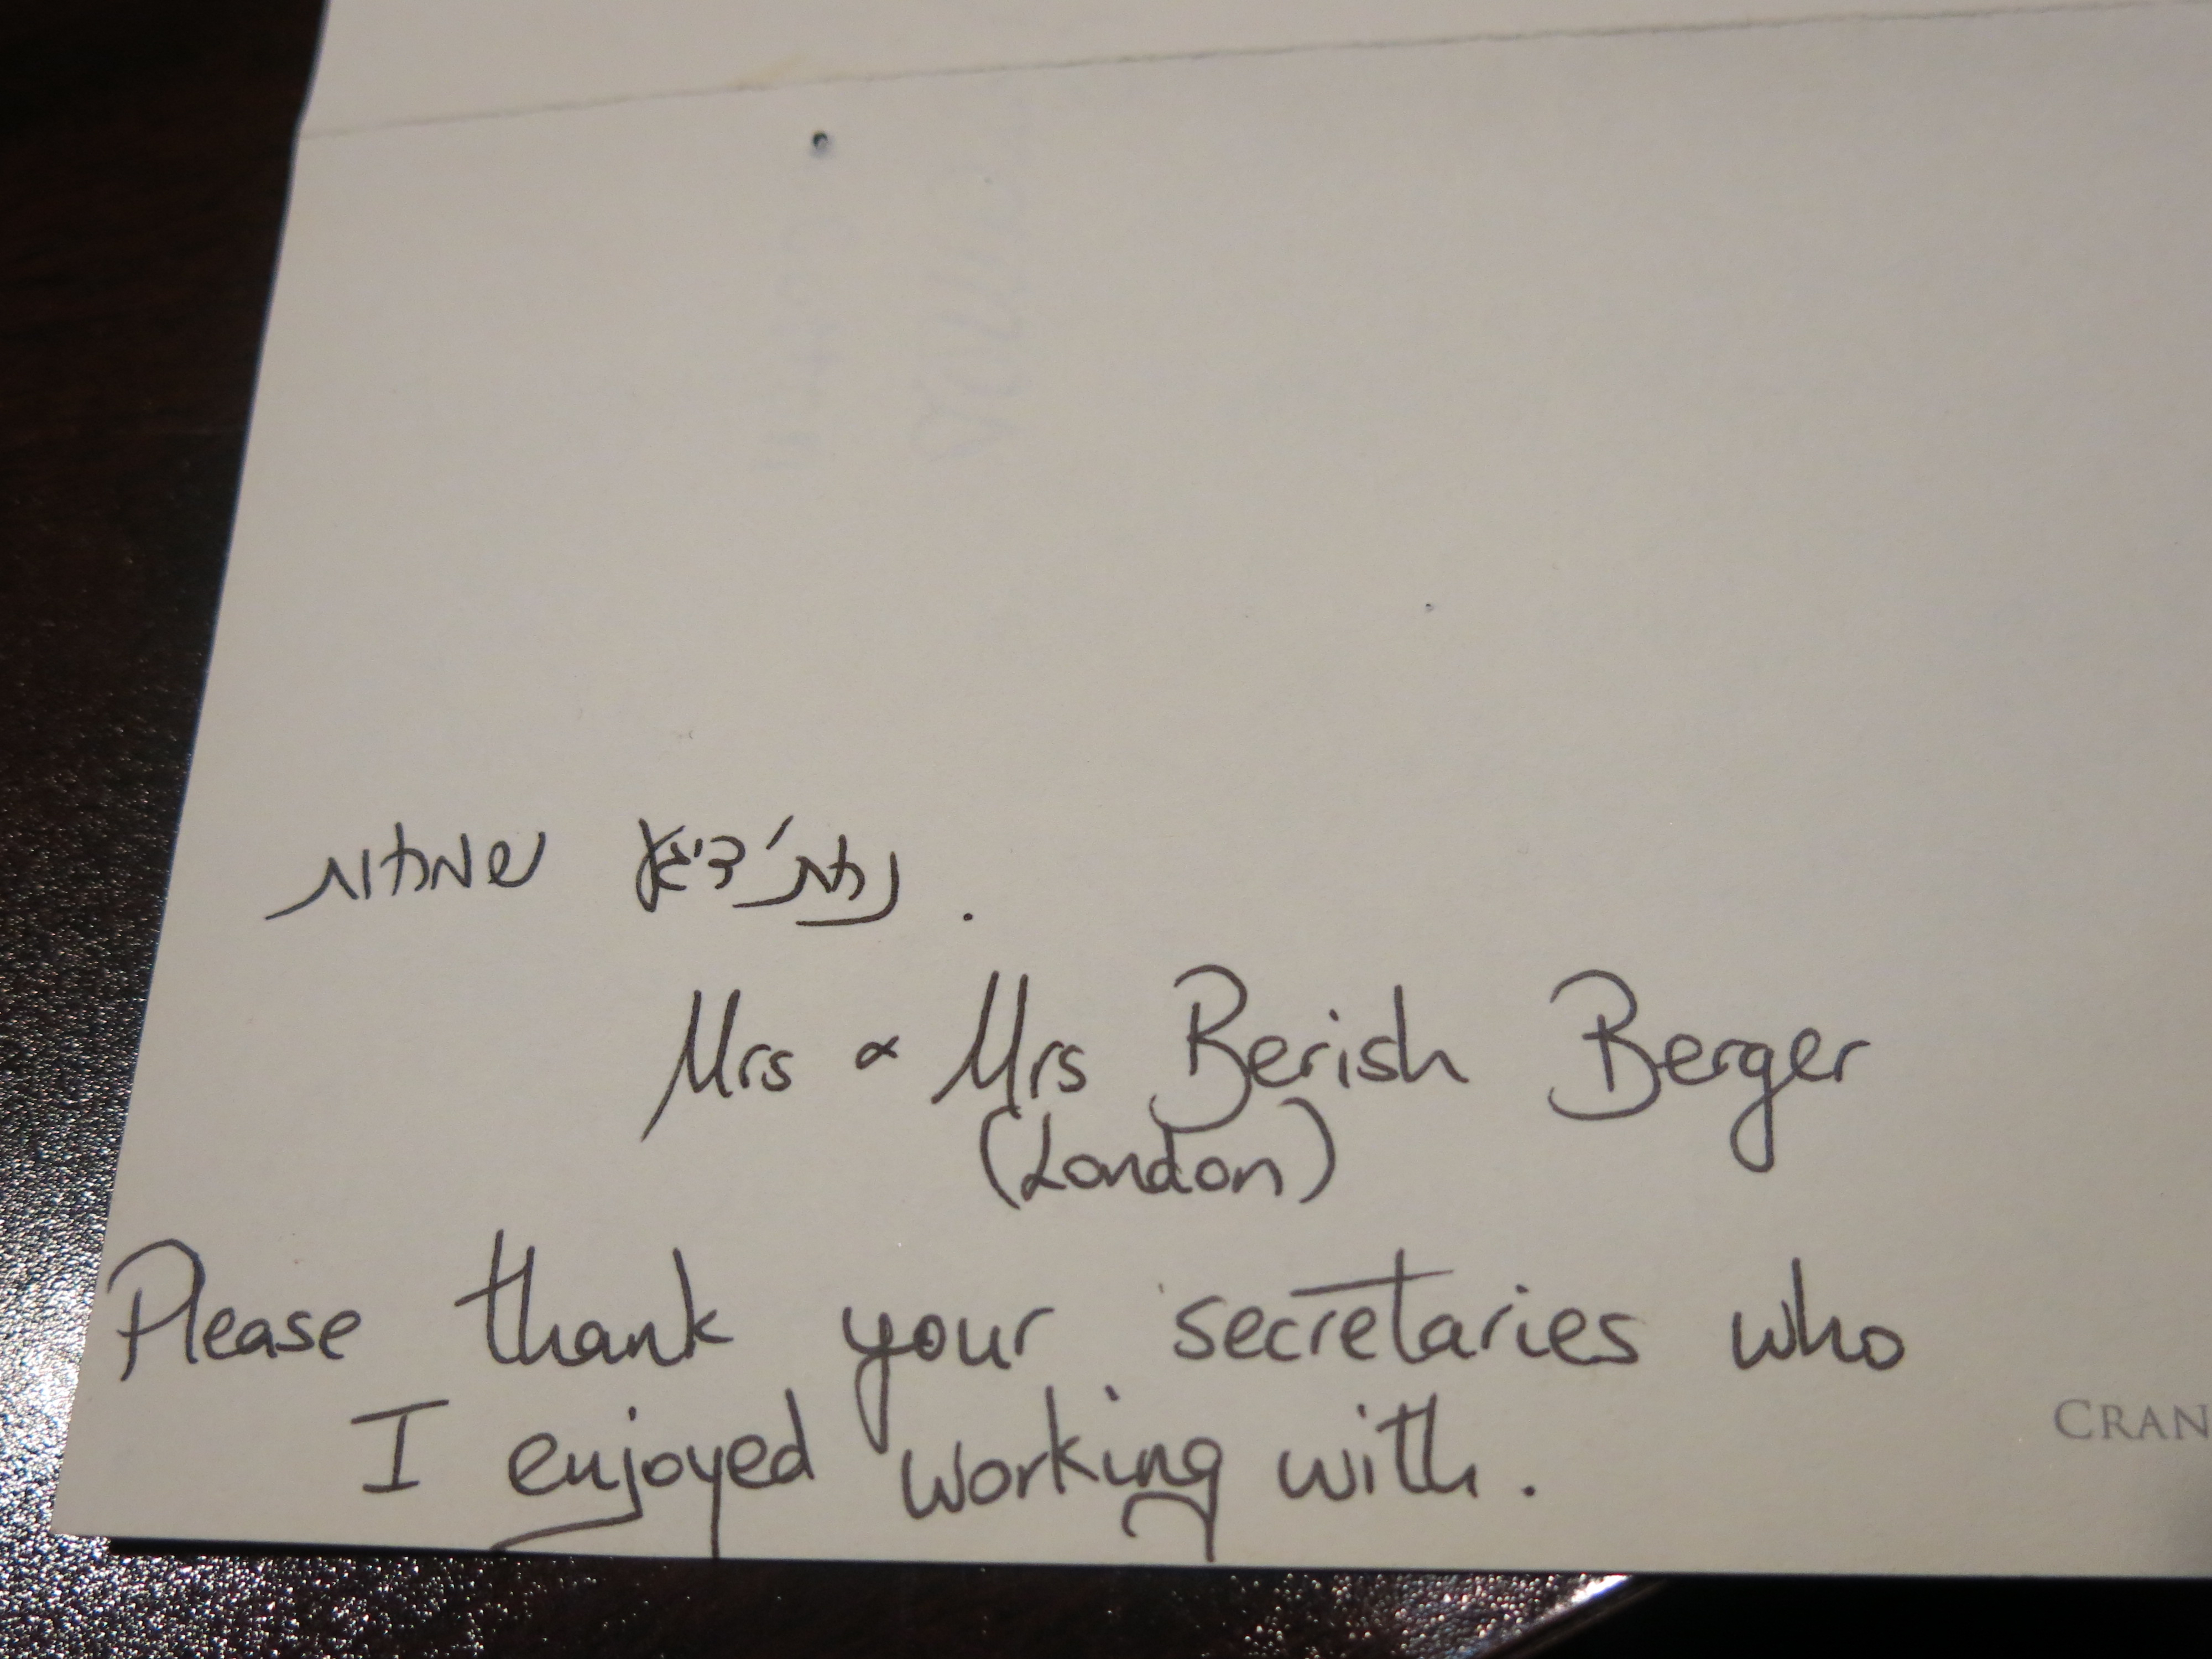 שמחות
Mrs & Mrs Berish Berger
(London)
Please thank your secretaries who
I enjoyed working with.
CRAN